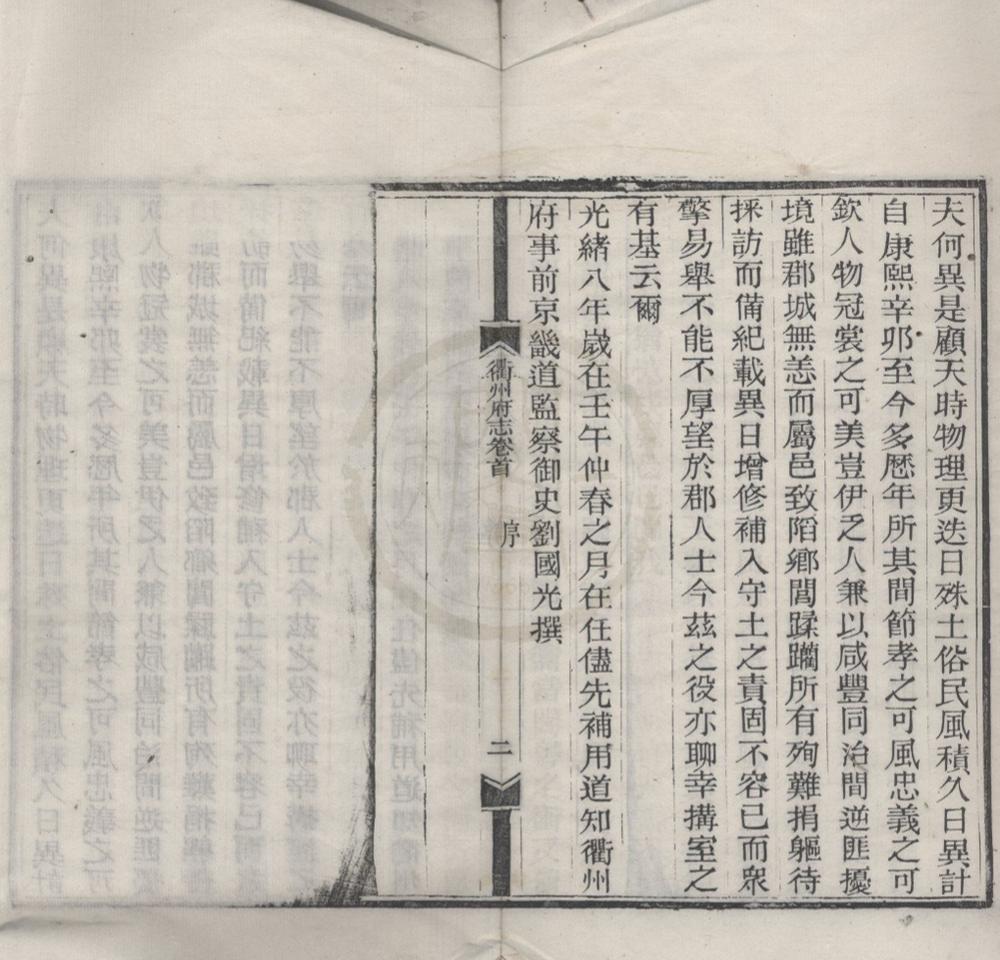 夫何異是顧天時物理更迭日殊土俗民風積久日異計
自康熙辛夘至今多歷年所其間節孝之可風忠義之可
欽人物冠裳之可美豈伊乏人兼以咸豐同治間逆匪擾
境雖郡城無恙而屬邑致陷鄉閭蹂躪所有殉難捐軀待
採訪而備紀載異日增修補入守土之責固不容已而衆
擎易舉不能不厚望於郡人士今茲之役亦聊幸搆室之
有基云爾
光緒八年歲在壬午仲春之月在任儘先補用道知衢州
府事前京畿道監察御史劉國光撰
衢州府志卷首
序
二